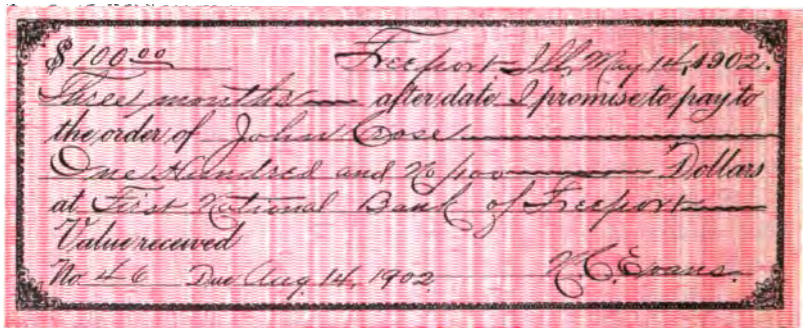 $100.00 Freeport, Ill, May 14, 1902.
Three months after date I promise to pay to
the order of John Cose
One Hundred and No/100 Dollars
at First National Bank of Freeport
Value received
No. 46 Due Aug. 14, 1902 Evans.